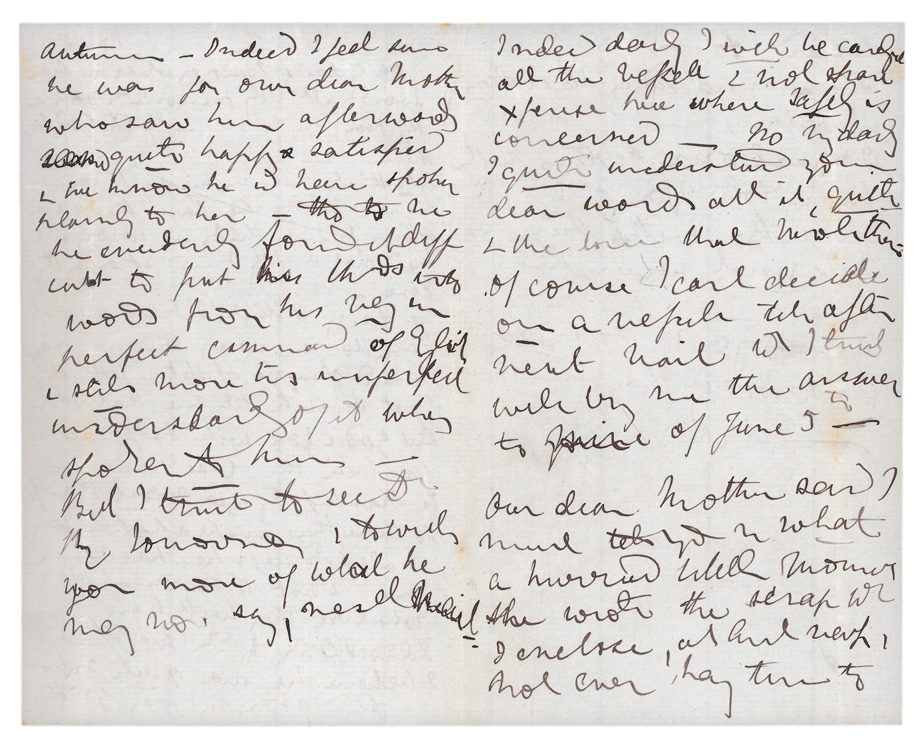 autumn – Indeed I feel sure
he was for our dear Mother
who saw him afterwards
quite happy & satisfied
& we know he wd have spoken
plainly to her – tho' to he
he evidently found it diffi
cult to put his thds into
words from his very im
perfect command of Eglish
& still more his imperfect
understandg of it when
spoken to him —
But I trust to see Dr
Hy tomorrow, & to write
you more of what he
may now say, next Mail
Indeed dearly I will be careful
all the vessels & not spare
xpense here where safety is
concerned — No my dearly
I quite understand your
dear words all it quite
& the love that
of course I can't decide
on a vessel till after
next Mail wh I trust
will brg me the answer
to of June 5th —
Our dear Mother said I
must tell yo in what
a hurried little moment
she wrote the scrap wh
I enclose, at last,
not even havg time to